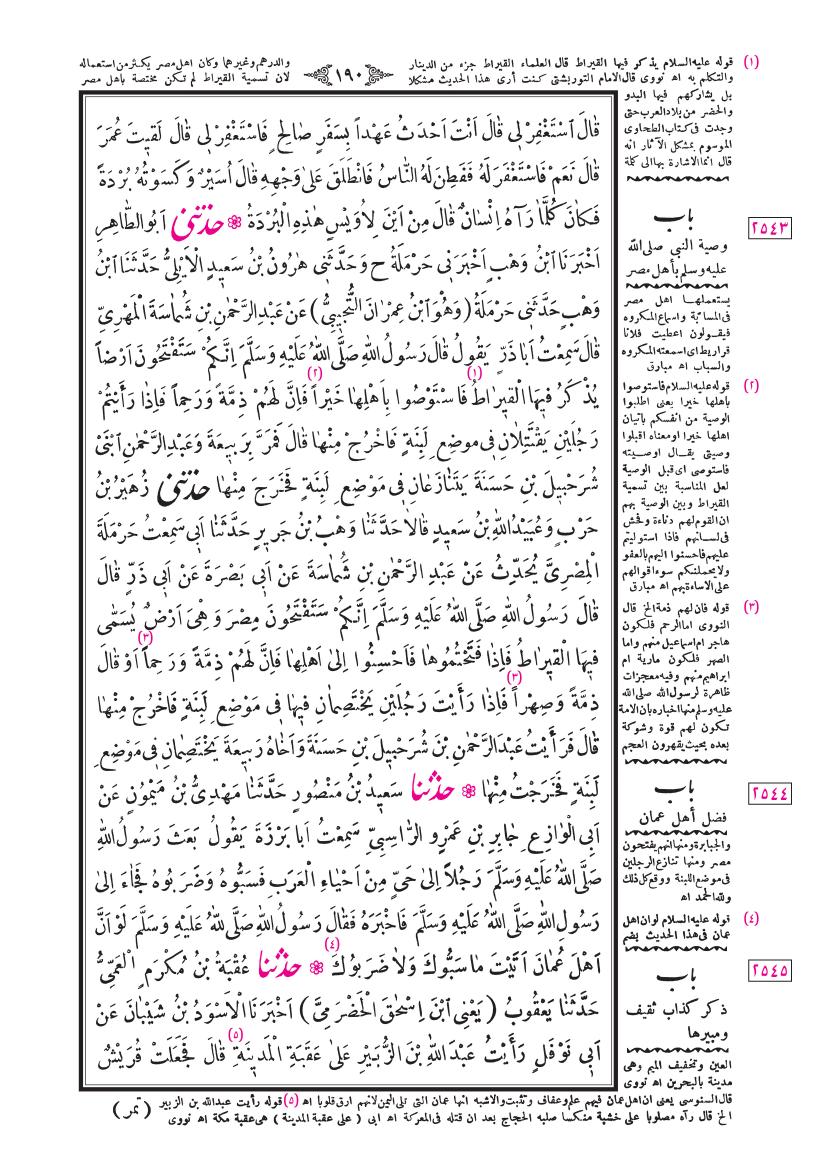 (١) قوله عليه السلام يذكر فيها القيراط قال العلماء القيراط جزء من الدينار
والدرهم وغيرهما وكان اهل مصر يكثر من استعماله
والتكلم به اھ نووى قال الامام التوربشتى كنت أرى هذا الحديث مشكلا
لان تسمية القيراط لم تكن مختصة باهل مصر
١٩٠
بل يشاركهم فيها البدو
والحضر من بلاد العرب حتى
وجدت فى كتاب الطحاوى
الموسوم بمشكل الآثار انه
قال انما الاشارة بها الى كلة
قَالَ اَسْتَغْفِرْ لِى قَالَ اَنْتَ اَحْدَثُ عَهْداً بِسَفَرٍ صَالِحٍ فَاسْتَغْفِرْ لِى قَالَ لَقِيتَ عُمَرَ
قَالَ نَعَمْ فَاسْتَغْفَرَ لَهُ فَفَطِنَ لَهُ النَّاسُ فَانْطَلَقَ عَلَى وَجْهِهِ قَالَ اُسَيْرٌ وَكَسَوْتُهُ بُرْدَةً
فَكَانَ كُلَّمَا رَآهُ اِنْسَانٌ قَالَ مِنْ اَيْنَ لِاُوَيْسٍ هٰذِهِ الْبُرْدَةُ ❁ حَدَّثَنِى اَبُو الطَّاهِرِ
اَخْبَرَنَا ابْنُ وَهْبٍ اَخْبَرَنِى حَرْمَلَةُ ح وَحَدَّثَنِى هٰرُونُ بْنُ سَعِيدٍ الْاَيْلِىُّ حَدَّثَنَا ابْنُ
وَهْبٍ حَدَّثَنِى حَرْمَلَةُ (وَهُوَ ابْنُ عِمْرَانَ التُّجِيبِىُّ) عَنْ عَبْدِ الرَّحْمٰنِ بْنِ شُمَاسَةَ الْمَهْرِىِّ
قَالَ سَمِعْتُ اَبَا ذَرٍّ يَقُولُ قَالَ رَسُولُ اللهِ صَلَّى اللهُ عَلَيْهِ وَسَلَّمَ اِنَّكُمْ سَتَفْتَحُونَ اَرْضاً
يُذْكَرُ فِيهَا الْقِيرَاطُ (١) فَاسْتَوْصُوا بِاَهْلِهَا خَيْراً (٢) فَاِنَّ لَهُمْ ذِمَّةً وَرَحِماً فَاِذَا رَأَيْتُمْ
رَجُلَيْنِ يَقْتَتِلَانِ فِى مَوْضِعِ لَبِنَةٍ فَاخْرُجْ مِنْهَا قَالَ فَمَرَّ بِرَبِيعَةَ وَعَبْدِ الرَّحْمٰنِ ابْنَىْ
شُرَحْبِيلَ بْنِ حَسَنَةَ يَتَنَازَعَانِ فِى مَوْضِعِ لَبِنَةٍ فَخَرَجَ مِنْهَا حَدَّثَنِى زُهَيْرُ بْنُ
حَرْبٍ وَعُبَيْدُ اللهِ بْنُ سَعِيدٍ قَالَا حَدَّثَنَا وَهْبُ بْنُ جَرِيرٍ حَدَّثَنَا اَبِى سَمِعْتُ حَرْمَلَةَ
الْمِصْرِىَّ يُحَدِّثُ عَنْ عَبْدِ الرَّحْمٰنِ بْنِ شُمَاسَةَ عَنْ اَبِى بَصْرَةَ عَنْ اَبِى ذَرٍّ قَالَ
قَالَ رَسُولُ اللهِ صَلَّى اللهُ عَلَيْهِ وَسَلَّمَ اِنَّكُمْ سَتَفْتَحُونَ مِصْرَ وَهِىَ اَرْضٌ يُسَمَّى
فِيهَا الْقِيرَاطُ فَاِذَا فَتَحْتُمُوهَا فَاَحْسِنُوا اِلَى اَهْلِهَا فَاِنَّ لَهُمْ ذِمَّةً وَرَحِماً (٣) اَوْ قَالَ
ذِمَّةً وَصِهْراً (٣) فَاِذَا رَأَيْتَ رَجُلَيْنِ يَخْتَصِمَانِ فِيهَا فِى مَوْضِعِ لَبِنَةٍ فَاخْرُجْ مِنْهَا
قَالَ فَرَأَيْتُ عَبْدَ الرَّحْمٰنِ بْنَ شُرَحْبِيلَ بْنِ حَسَنَةَ وَاَخَاهُ رَبِيعَةَ يَخْتَصِمَانِ فِى مَوْضِعِ
لَبِنَةٍ فَخَرَجْتُ مِنْهَا ❁ حَدَّثَنَا سَعِيدُ بْنُ مَنْصُورٍ حَدَّثَنَا مَهْدِىُّ بْنُ مَيْمُونٍ عَنْ
اَبِى الْوَازِعِ جَابِرِ بْنِ عَمْرٍو الرَّاسِبِىِّ سَمِعْتُ اَبَا بَرْزَةَ يَقُولُ بَعَثَ رَسُولُ اللهِ
صَلَّى اللهُ عَلَيْهِ وَسَلَّمَ رَجُلاً اِلَى حَىٍّ مِنْ اَحْيَاءِ الْعَرَبِ فَسَبُّوهُ وَضَرَبُوهُ فَجَاءَ اِلَى
رَسُولِ اللهِ صَلَّى اللهُ عَلَيْهِ وَسَلَّمَ فَاَخْبَرَهُ فَقَالَ رَسُولُ اللهِ صَلَّى اللهُ عَلَيْهِ وَسَلَّمَ لَوْ اَنَّ
اَهْلَ عُمَانَ اَتَيْتَ مَا سَبُّوكَ وَلَا ضَرَبُوكَ (٤) ❁ حَدَّثَنَا عُقْبَةُ بْنُ مُكْرَمٍ الْعَمِّىُّ
حَدَّثَنَا يَعْقُوبُ (يَعْنِى ابْنَ اِسْحٰقَ الْحَضْرَمِىَّ) اَخْبَرَنَا الْاَسْوَدُ بْنُ شَيْبَانَ عَنْ
اَبِى نَوْفَلٍ رَأَيْتُ عَبْدَ اللهِ بْنَ الزُّبَيْرِ عَلَى عَقَبَةِ الْمَدِينَةِ (٥) قَالَ فَجَعَلَتْ قُرَيْشٌ
٢٥٤٣
باب
وصية النبى صلى الله
عليه وسلم بأهل مصر
يستعملها اهل مصر
فى المسابّة واسماع المكروه
فيقولون اعطيت فلانا
قراريط اى اسمعته المكروه
والسباب اھ مبارق
(٢) قوله عليه السلام فاستوصوا
باهلها خيرا يعنى اطلبوا
الوصية من انفسكم باتيان
اهلها خيرا او معناه اقبلوا
وصيتى يقال اوصيته
فاستوصى اى قبل الوصية
لعل المناسبة بين تسمية
القيراط وبين الوصية بهم
ان القوم لهم دناءة وفحش
فى لسانهم فاذا استوليتم
عليهم فاحسنوا اليهم بالعفو
ولا يحملنكم سوء اقوالهم
على الاساءة بهم اھ مبارق
(٣) قوله فان لهم ذمة الخ قال
النووى اما الرحم فلكون
هاجر ام اسماعيل منهم واما
الصهر فلكون مارية ام
ابراهيم منهم وفيه معجزات
ظاهرة لرسول الله صلى الله
عليه وسلم منها اخباره بان الامة
تكون لهم قوة وشوكة
بعده بحيث يقهرون العجم
٢٥٤٤
باب
فضل أهل عمان
والجبابرة ومنها انهم يفتحون
مصر ومنها تنازع الرجلين
فى موضع اللبنة ووقع كل ذلك
ولله الحمد اھ
(٤) قوله عليه السلام لو ان اهل
عمان فى هذا الحديث بضم
٢٥٤٥
باب
ذكر كذاب ثقيف
ومبيرها
العين وتخفيف الميم وهى
مدينة بالبحرين اھ نووى
قال السنوسى يعنى ان اهل عمان فيهم علم وعفاف وتثبت والاشبه انها عمان التى تلى اليمن لانهم ارق قلوبا اھ (٥) قوله رأيت عبد الله بن الزبير
الخ قال رآه مصلوبا على خشبة منكسا صلبه الحجاج بعد ان قتله فى المعركة اھ ابى (على عقبة المدينة) هى عقبة مكة اھ نووى
(تمر)